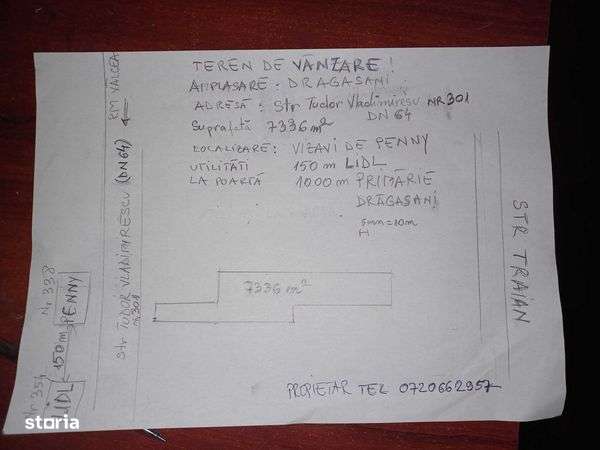 TEREN DE VÂNZARE!
AMPLASARE: DRAGASANI
ADRESĂ: Str Tudor Vladimirescu NR 301
DN 64
Suprafată 7336 m²
LOCALIZARE: VIZAVI DE PENNY
UTILITĂTI 150 m LIDL
LA POARTĂ 1000 m PRIMĂRIE
DRĂGĂSANI
5mm=10m
7336 m²
STR TRAIAN
RM VALCEA
Str TUDOR VLADIMIRESCU (DN64)
nr 301
Nr 338
PENNY
150 m
Nr 354
LIDL
PROPIETAR TEL 0720662957
storia